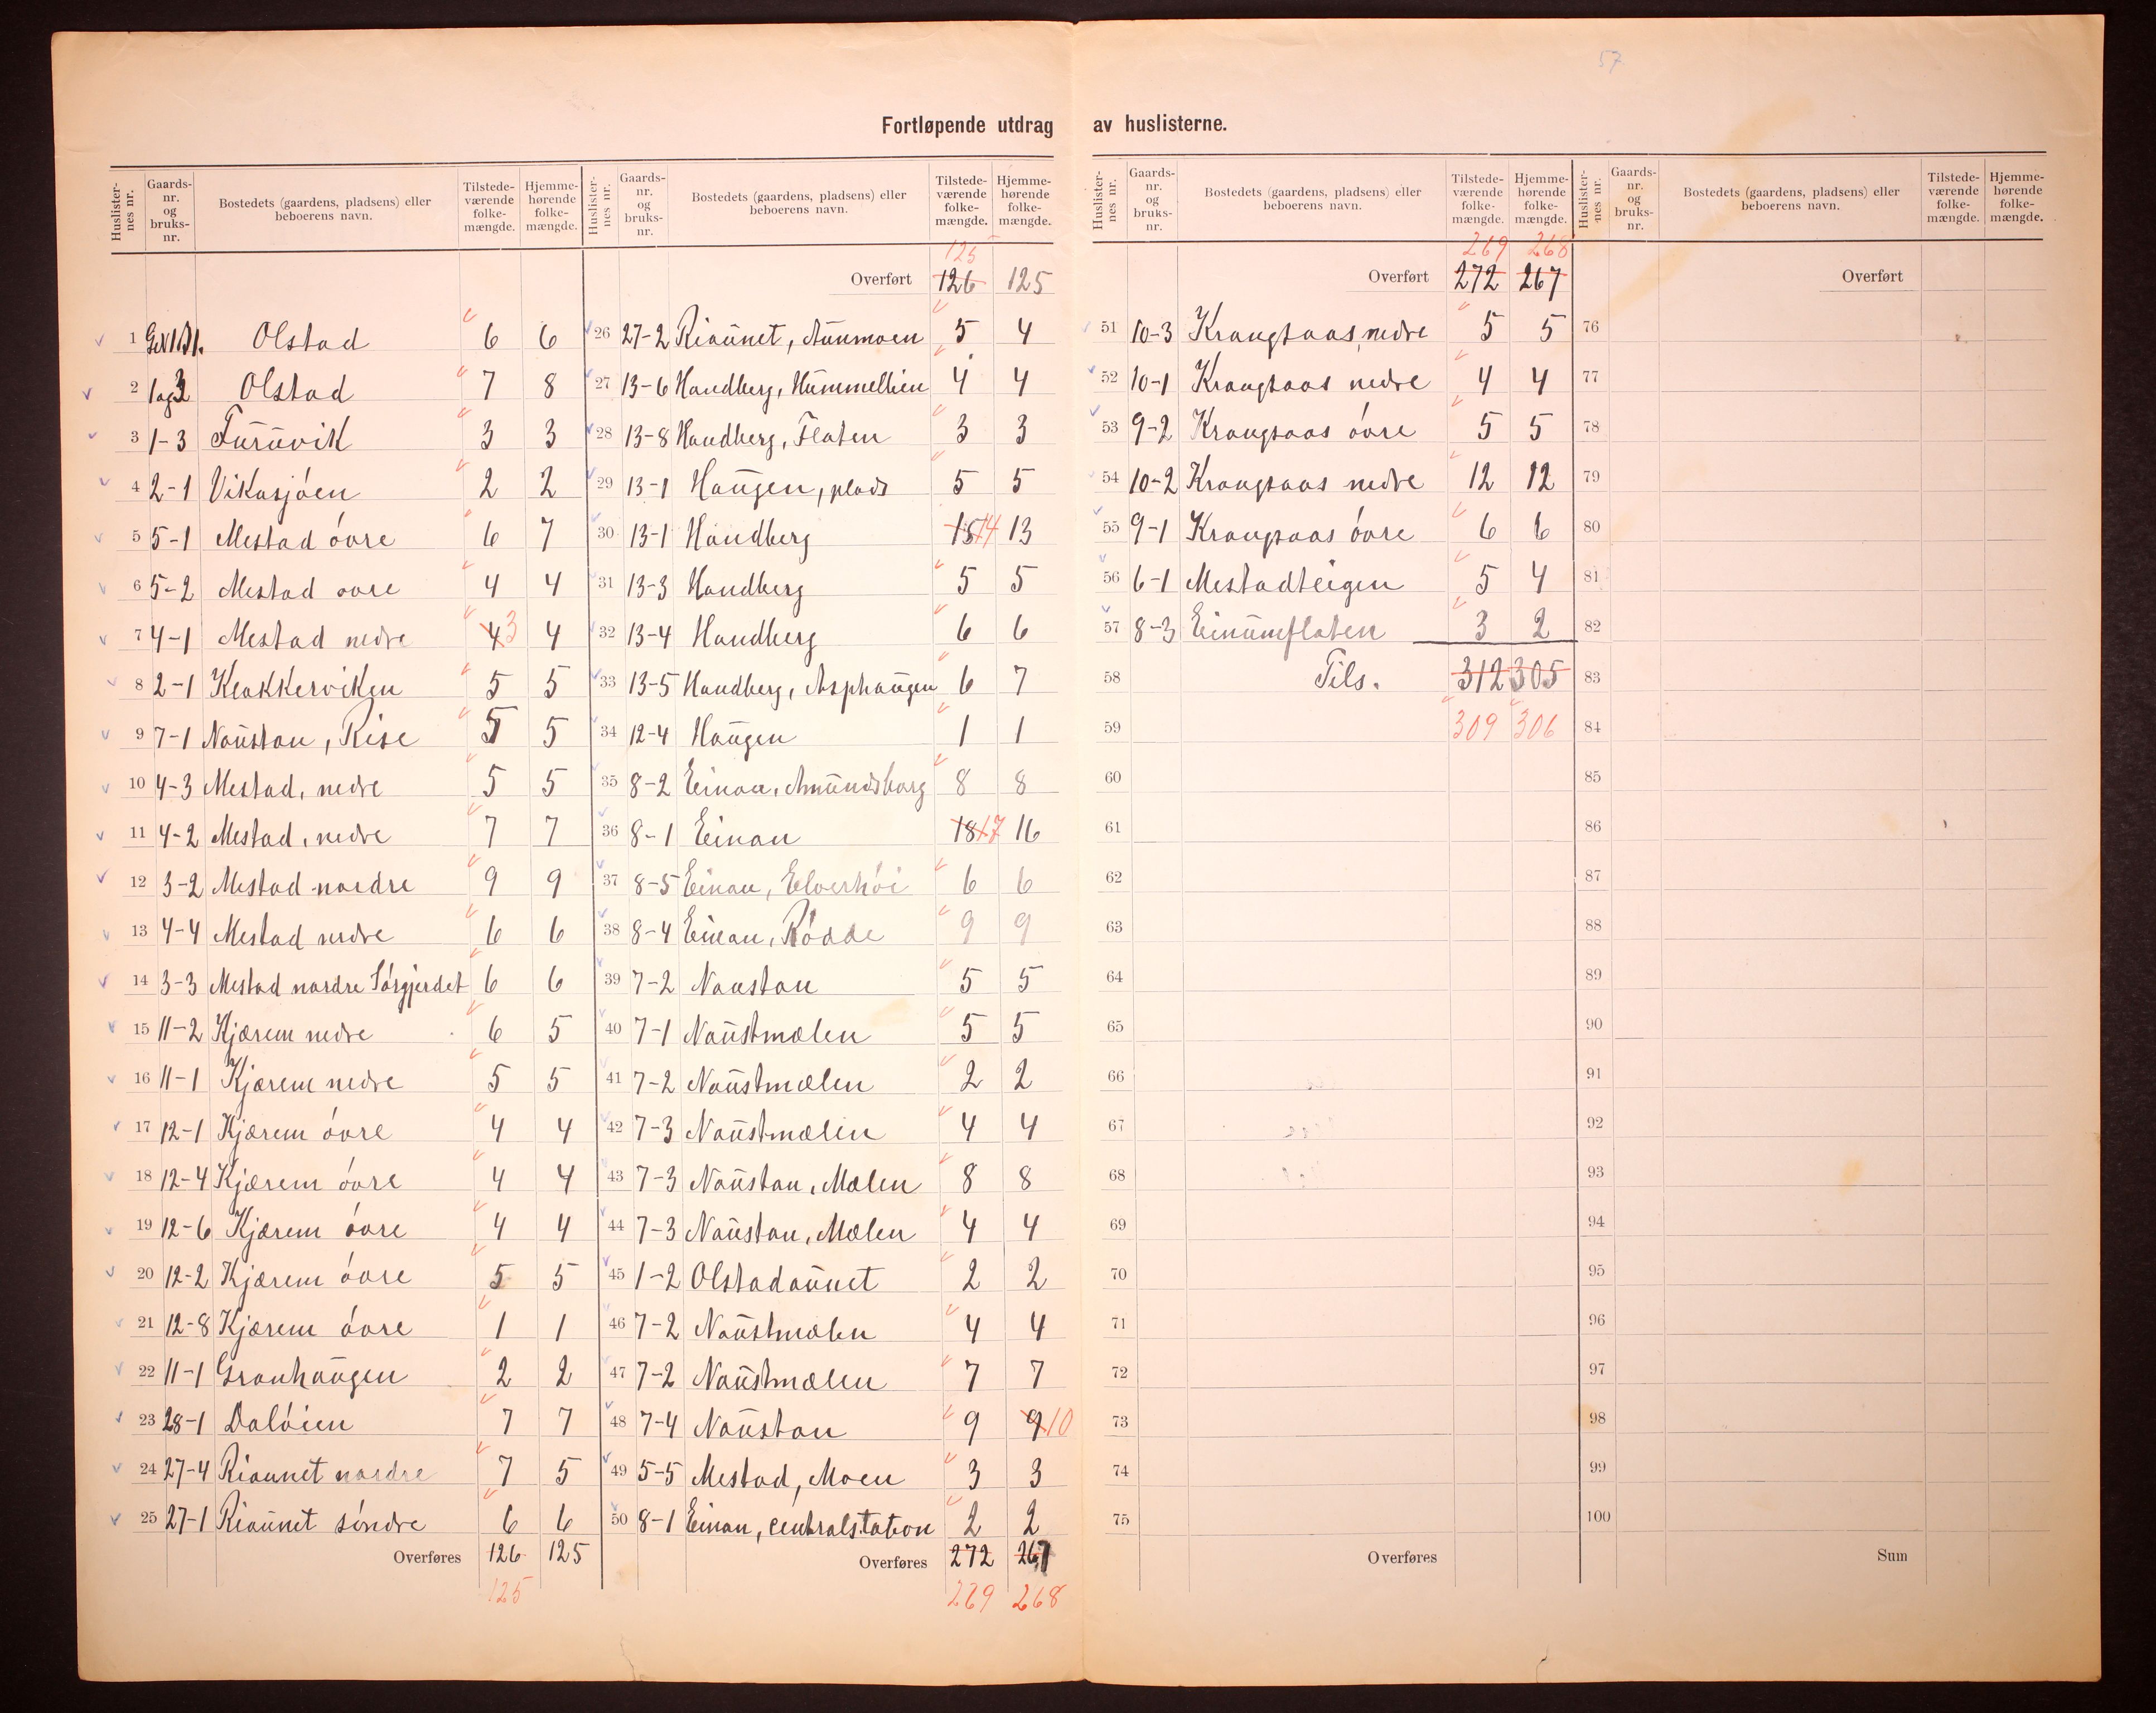 57
Fortløpende utdrag av huslisterne.
Huslister-nes nr. Gaards-nr. og bruks-nr. Bostedets (gaardens, pladsens) eller beboerens navn. Tilstede-værende folke-mængde. Hjemme-hørende folke-mængde.
1 Olstad 6 6
2 Olstad 7 8
3 1-3 Furuvik 3 3
4 2-1 Vikasjöen 2 2
5 5-1 Mestad övre 6 7
6 5-2 Mestad övre 4 4
7 4-1 Mestad nedre 4 3 4
8 2-1 Klakkerviken 5 5
9 7-1 Naustan, Rise 5 5
10 4-3 Mestad, nedre 5 5
11 4-2 Mestad, nedre 7 7
12 3-2 Mestad nordre 9 9
13 4-4 Mestad nedre 6 6
14 3-3 Mestad nordre Sörgjerdet 6 6
15 11-2 Kjærem nedre 6 5
16 11-1 Kjærem nedre 5 5
17 12-1 Kjærem övre 4 4
18 12-4 Kjærem övre 4 4
19 12-6 Kjærem övre 4 4
20 12-2 Kjærem övre 5 5
21 12-8 Kjærem övre 1 1
22 11-1 Granhaugen 2 2
23 28-1 Dalöien 7 7
24 27-4 Riaunet nordre 7 5
25 27-1 Riaunet söndre 6 6
Overføres 126 125
125
Huslister-nes nr. Gaards-nr. og bruks-nr. Bostedets (gaardens, pladsens) eller beboerens navn. Tilstede-værende folke-mængde. Hjemme-hørende folke-mængde.
125
Overført 126 125
26 27-2 Riaunet, Aunmoen 5 4
27 13-6 Handberg, Hummellien 4 4
28 13-8 Handberg, Flaten 3 3
29 13-1 Haugen, plads 5 5
30 13-1 Handberg 15 14 13
31 13-3 Handberg 5 5
32 13-4 Handberg 6 6
33 13-5 Handberg, Asphaugen 6 7
34 12-4 Haugen 1 1
35 8-2 Einan, Amundsborg 8 8
36 8-1 Einan 18 17 16
37 8-5 Einan, Elverhöi 6 6
38 8-4 Einan, Rödde 9 9
39 7-2 Naustan 5 5
40 7-1 Naustmælen 5 5
41 7-2 Naustmælen 2 2
42 7-3 Naustmælen 4 4
43 7-3 Naustan, Mælen 8 8
44 7-3 Naustan, Mælen 4 4
45 1-2 Olstadaunet 2 2
46 7-2 Naustmælen 4 4
47 7-2 Naustmælen 7 7
48 7-4 Naustan 9 9 10
49 5-5 Mestad, Moen 3 3
50 8-1 Einan, centralstation 2 2
Overføres 272 267
269 268
Huslister-nes nr. Gaards-nr. og bruks-nr. Bostedets (gaardens, pladsens) eller beboerens navn. Tilstede-værende folke-mængde. Hjemme-hørende folke-mængde.
269 268
Overført 272 267
51 10-3 Krangsaas, nedre 5 5
52 10-1 Krangsaas nedre 4 4
53 9-2 Krangsaas övre 5 5
54 10-2 Krangsaas nedre 12 12
55 9-1 Krangsaas övre 6 6
56 6-1 Mestadteigen 5 4
57 8-3 Einumflaten 3 2
58 Tils. 312 305
59 309 306
60
61
62
63
64
65
66
67
68
69
70
71
72
73
74
75
Overføres
Huslister-nes nr. Gaards-nr. og bruks-nr. Bostedets (gaardens, pladsens) eller beboerens navn. Tilstede-værende folke-mængde. Hjemme-hørende folke-mængde.
Overført
76
77
78
79
80
81
82
83
84
85
86
87
88
89
90
91
92
93
94
95
96
97
98
99
100
Sum